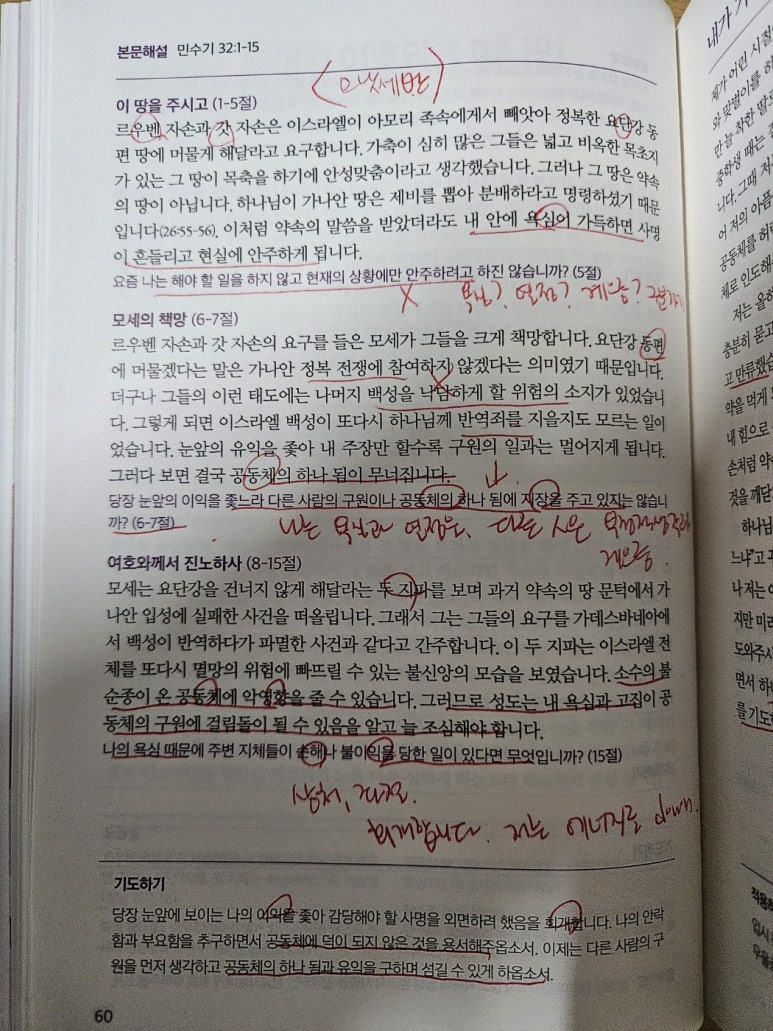 본문해설 민수기 32:1-15
이 땅을 주시고 (1-5절)
르우벤 자손과 갓 자손은 이스라엘이 아모리 족속에게서 빼앗아 정복한 요단강 동
편 땅에 머물게 해달라고 요구합니다. 가축이 심히 많은 그들은 넓고 비옥한 목초지
가 있는 그 땅이 목축을 하기에 안성맞춤이라고 생각했습니다. 그러나 그 땅은 약속
의 땅이 아닙니다. 하나님이 가나안 땅은 제비를 뽑아 분배하라고 명령하셨기 때문
입니다(26:55-56). 이처럼 약속의 말씀을 받았더라도 내 안에 욕심이 가득하면 사명
이 흔들리고 현실에 안주하게 됩니다.
요즘 나는 해야 할 일을 하지 않고 현재의 상황에만 안주하려고 하진 않습니까? (5절)
욕심? 열정? 게으름?
모세의 책망 (6-7절)
르우벤 자손과 갓 자손의 요구를 들은 모세가 그들을 크게 책망합니다. 요단강 동편
에 머물겠다는 말은 가나안 정복 전쟁에 참여하지 않겠다는 의미였기 때문입니다.
더구나 그들의 이런 태도에는 나머지 백성을 낙담하게 할 위험의 소지가 있었습니
다. 그렇게 되면 이스라엘 백성이 또다시 하나님께 반역죄를 지을지도 모르는 일이
었습니다. 눈앞의 유익을 좇아 내 주장만 할수록 구원의 일과는 멀어지게 됩니다.
그러다 보면 결국 공동체의 하나 됨이 무너집니다.
당장 눈앞의 이익을 좇느라 다른 사람의 구원이나 공동체의 하나 됨에 지장을 주고 있지는 않습니
까? (6-7절)
나는 욕심과 열정을, 다른
게으름.
여호와께서 진노하사 (8-15절)
모세는 요단강을 건너지 않게 해달라는 두 지파를 보며 과거 약속의 땅 문턱에서 가
나안 입성에 실패한 사건을 떠올립니다. 그래서 그는 그들의 요구를 가데스바네아에
서 백성이 반역하다가 파멸한 사건과 같다고 간주합니다. 이 두 지파는 이스라엘 전
체를 또다시 멸망의 위험에 빠뜨릴 수 있는 불신앙의 모습을 보였습니다. 소수의 불
순종이 온 공동체에 악영향을 줄 수 있습니다. 그러므로 성도는 내 욕심과 고집이 공
동체의 구원에 걸림돌이 될 수 있음을 알고 늘 조심해야 합니다.
나의 욕심 때문에 주변 지체들이 손해나 불이익을 당한 일이 있다면 무엇입니까? (15절)
상처,
회개합니다. 저는 에너지를 down.
기도하기
당장 눈앞에 보이는 나의 이익을 좇아 감당해야 할 사명을 외면하려 했음을 회개합니다. 나의 안락
함과 부요함을 추구하면서 공동체에 덕이 되지 않은 것을 용서해주옵소서. 이제는 다른 사람의 구
원을 먼저 생각하고 공동체의 하나 됨과 유익을 구하며 섬길 수 있게 하옵소서.
60